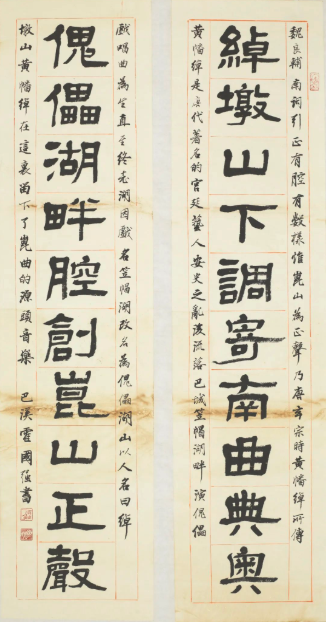 魏良輔南詞引正有腔有數樣惟崑山為正聲乃唐玄宗時黃幡綽所傳
綽墩山下調寄南曲典奥
黃幡綽是唐代著名的宫廷藝人安史之亂後流落巴城笠帽湖畔演傀儡
戲唱曲為生直至終老湖因戲名笠帽湖改名為傀儡湖山以人名曰綽
傀儡湖畔腔創崑山正聲
墩山黃幡綽在這裏留下了崑曲的源頭音樂 巴溪霍國强書